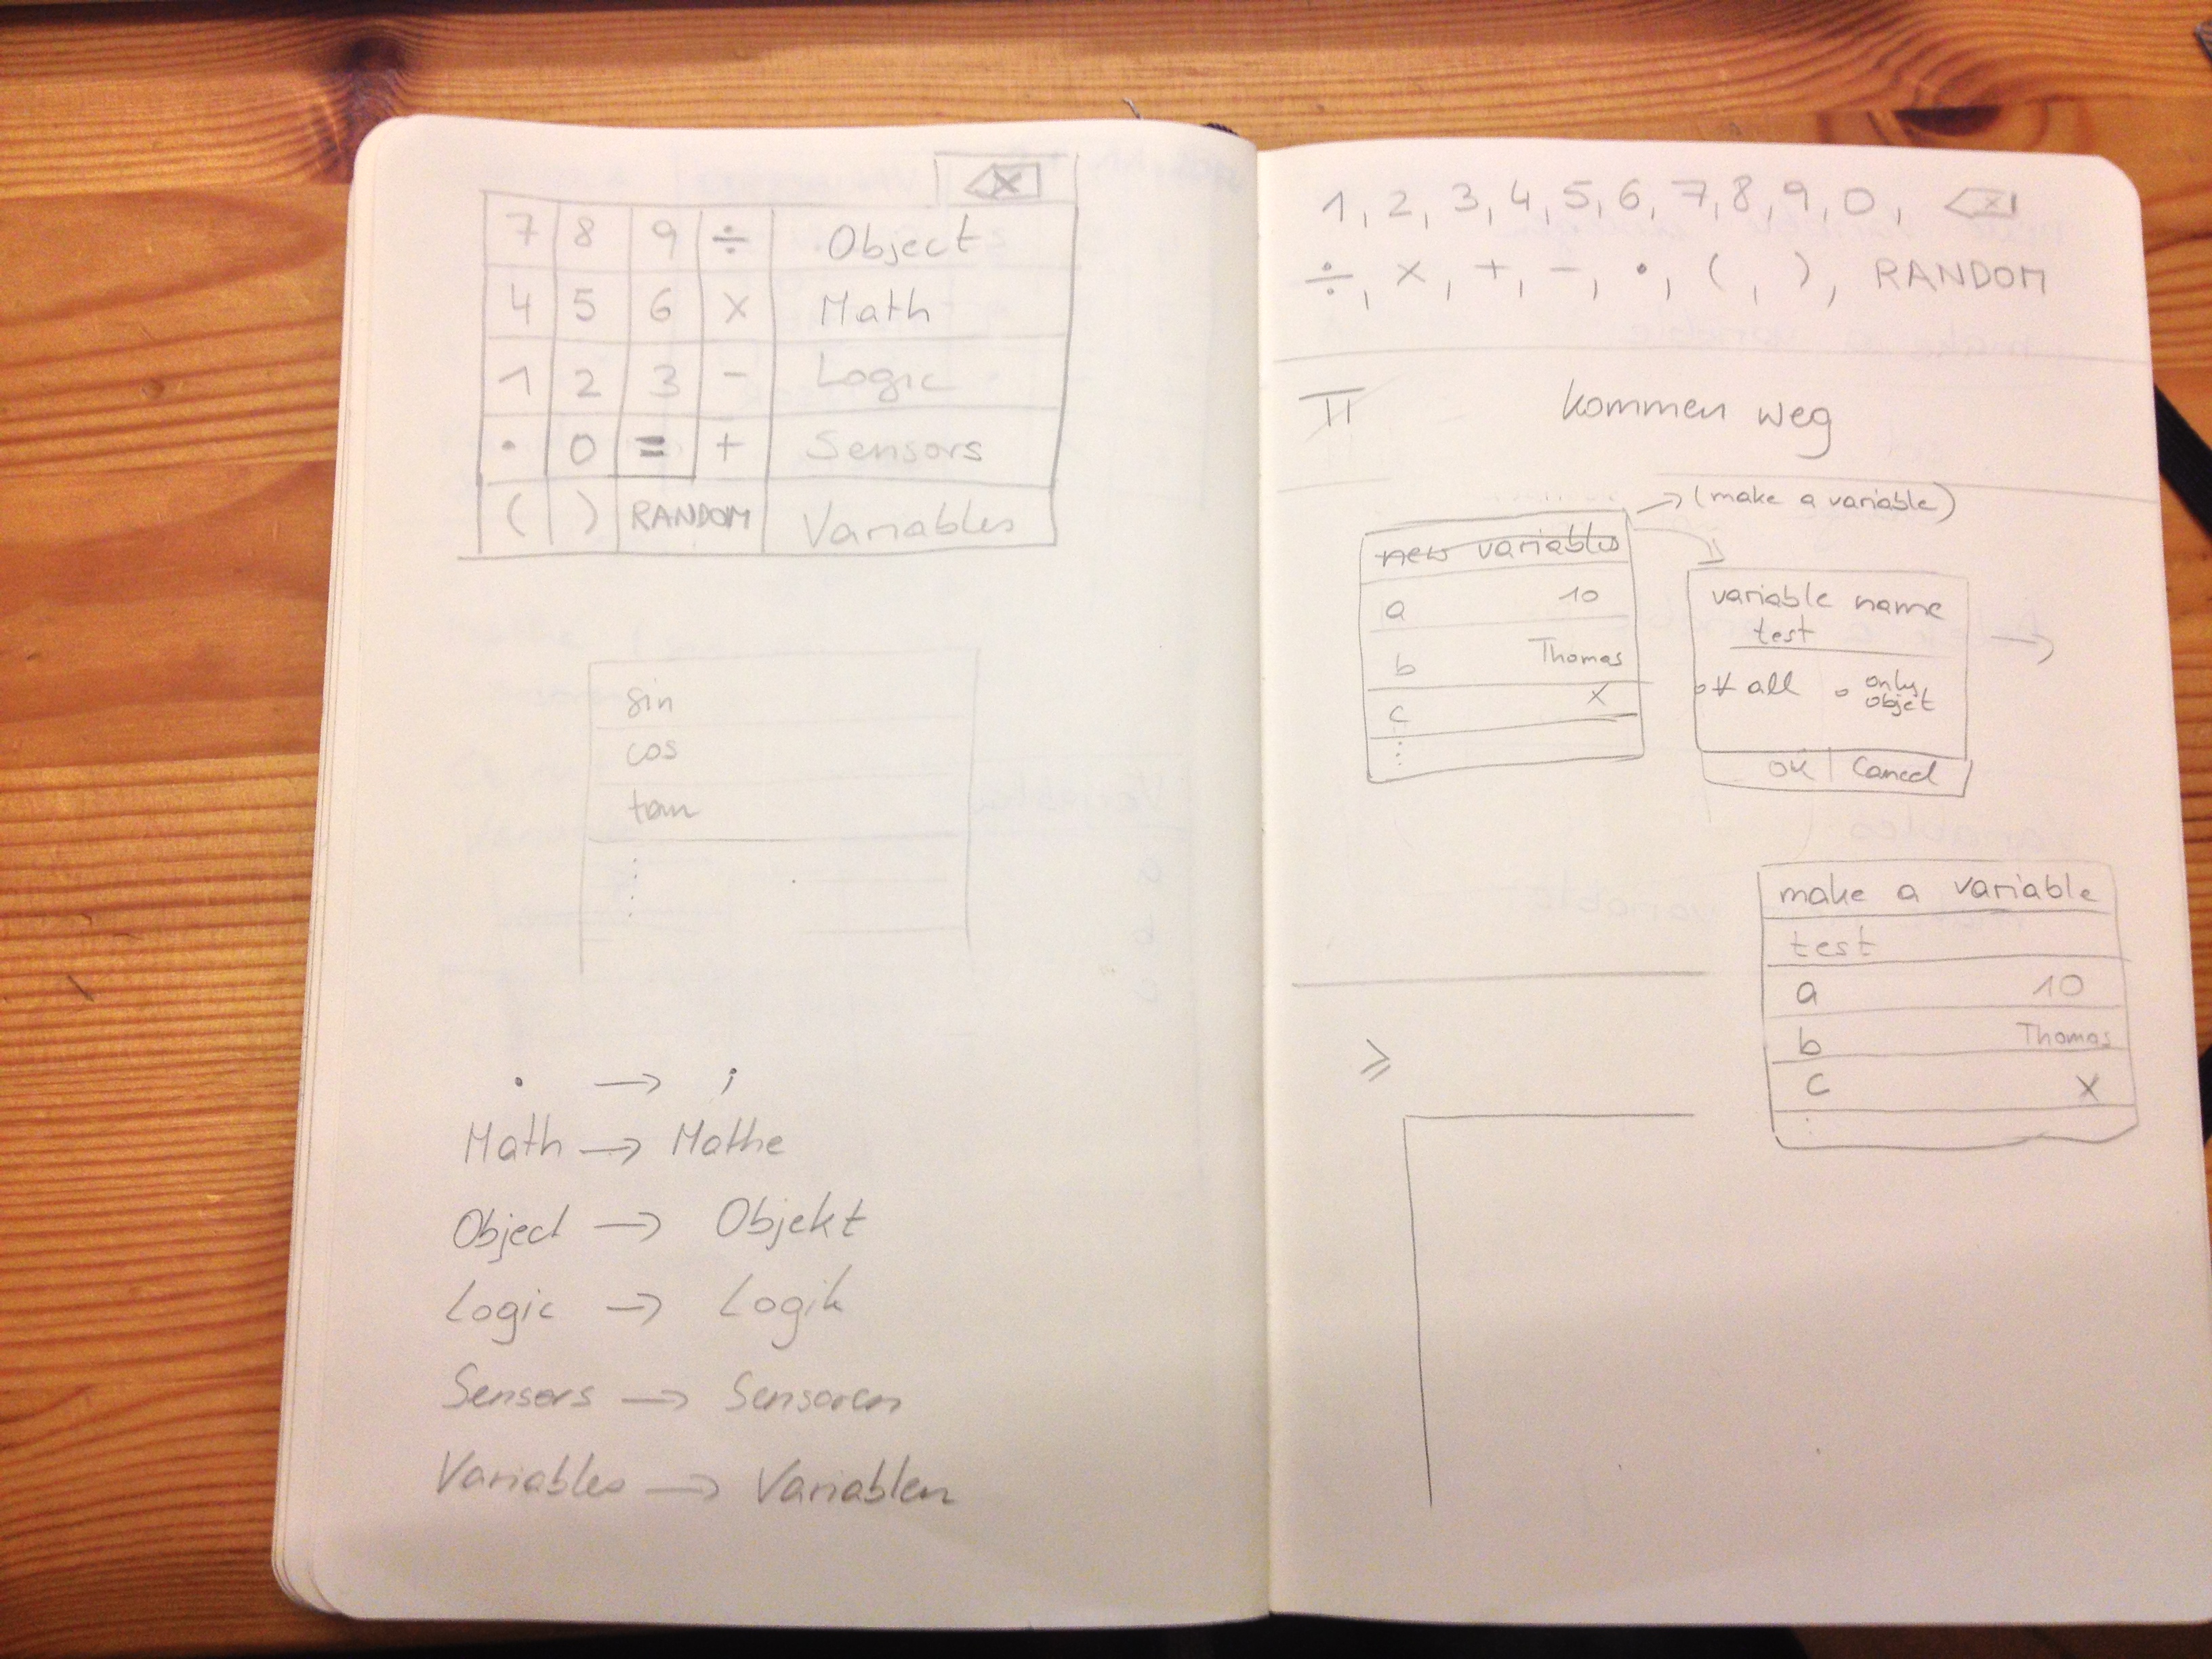 7 8 9 ÷ Object
4 5 6 x Math
1 2 3 - Logic
• 0 = + Sensors
( ) RANDOM Variables
sin
cos
tan
⋮
. → ,
Math → Mathe
Object → Objekt
Logic → Logik
Sensors → Sensoren
Variables → Variablen
1, 2, 3, 4, 5, 6, 7, 8, 9, 0, ⌫
÷, x, +, -, •, (, ), RANDOM
π kommen weg
→ (make a variable)
new variables
a 10
b Thomas
c x
⋮
variable name
test
all o only
object
OK | Cancel
→
make a variable
test
a 10
b Thomas
c x
⋮
≥